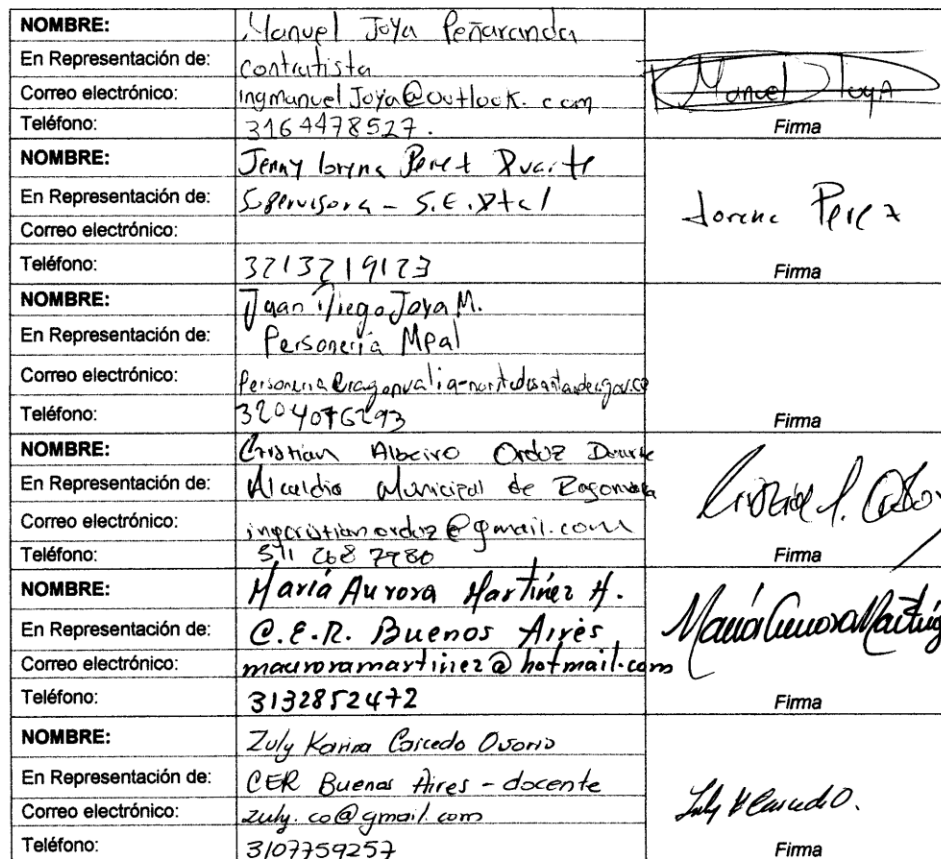 NOMBRE: Manuel Joya Peñaranda
En Representación de: contratista
Correo electrónico: ingmanuelJoya@outlook.com
Teléfono: 3164478527.
Manuel Joya
Firma
NOMBRE: Jenny Perez Duarte
En Representación de: Supervisora - S.E.Dtal
Correo electrónico:
Teléfono: 3213219123
Lorena Perez
Firma
NOMBRE: Juan Diego Joya M.
En Representación de: Personería Mpal
Correo electrónico:
Teléfono: 3204076293
Firma
NOMBRE: Cristian Albeiro Ordoz Duarte
En Representación de: Alcaldia Municipal de Ragonvalia
Correo electrónico: ingcristianordoz@gmail.com
Teléfono: 311 268 7980
Firma
NOMBRE: María Aurora Martínez H.
En Representación de: C.E.R. Buenos Aires
Correo electrónico: mauroramartinez@hotmail.com
Teléfono: 3132852472
María Aurora Martínez
Firma
NOMBRE: Zuly Karina Caicedo Osorio
En Representación de: CER Buenos Aires - docente
Correo electrónico: zuly.co@gmail.com
Teléfono: 3107759257
Zuly K Caicedo O.
Firma